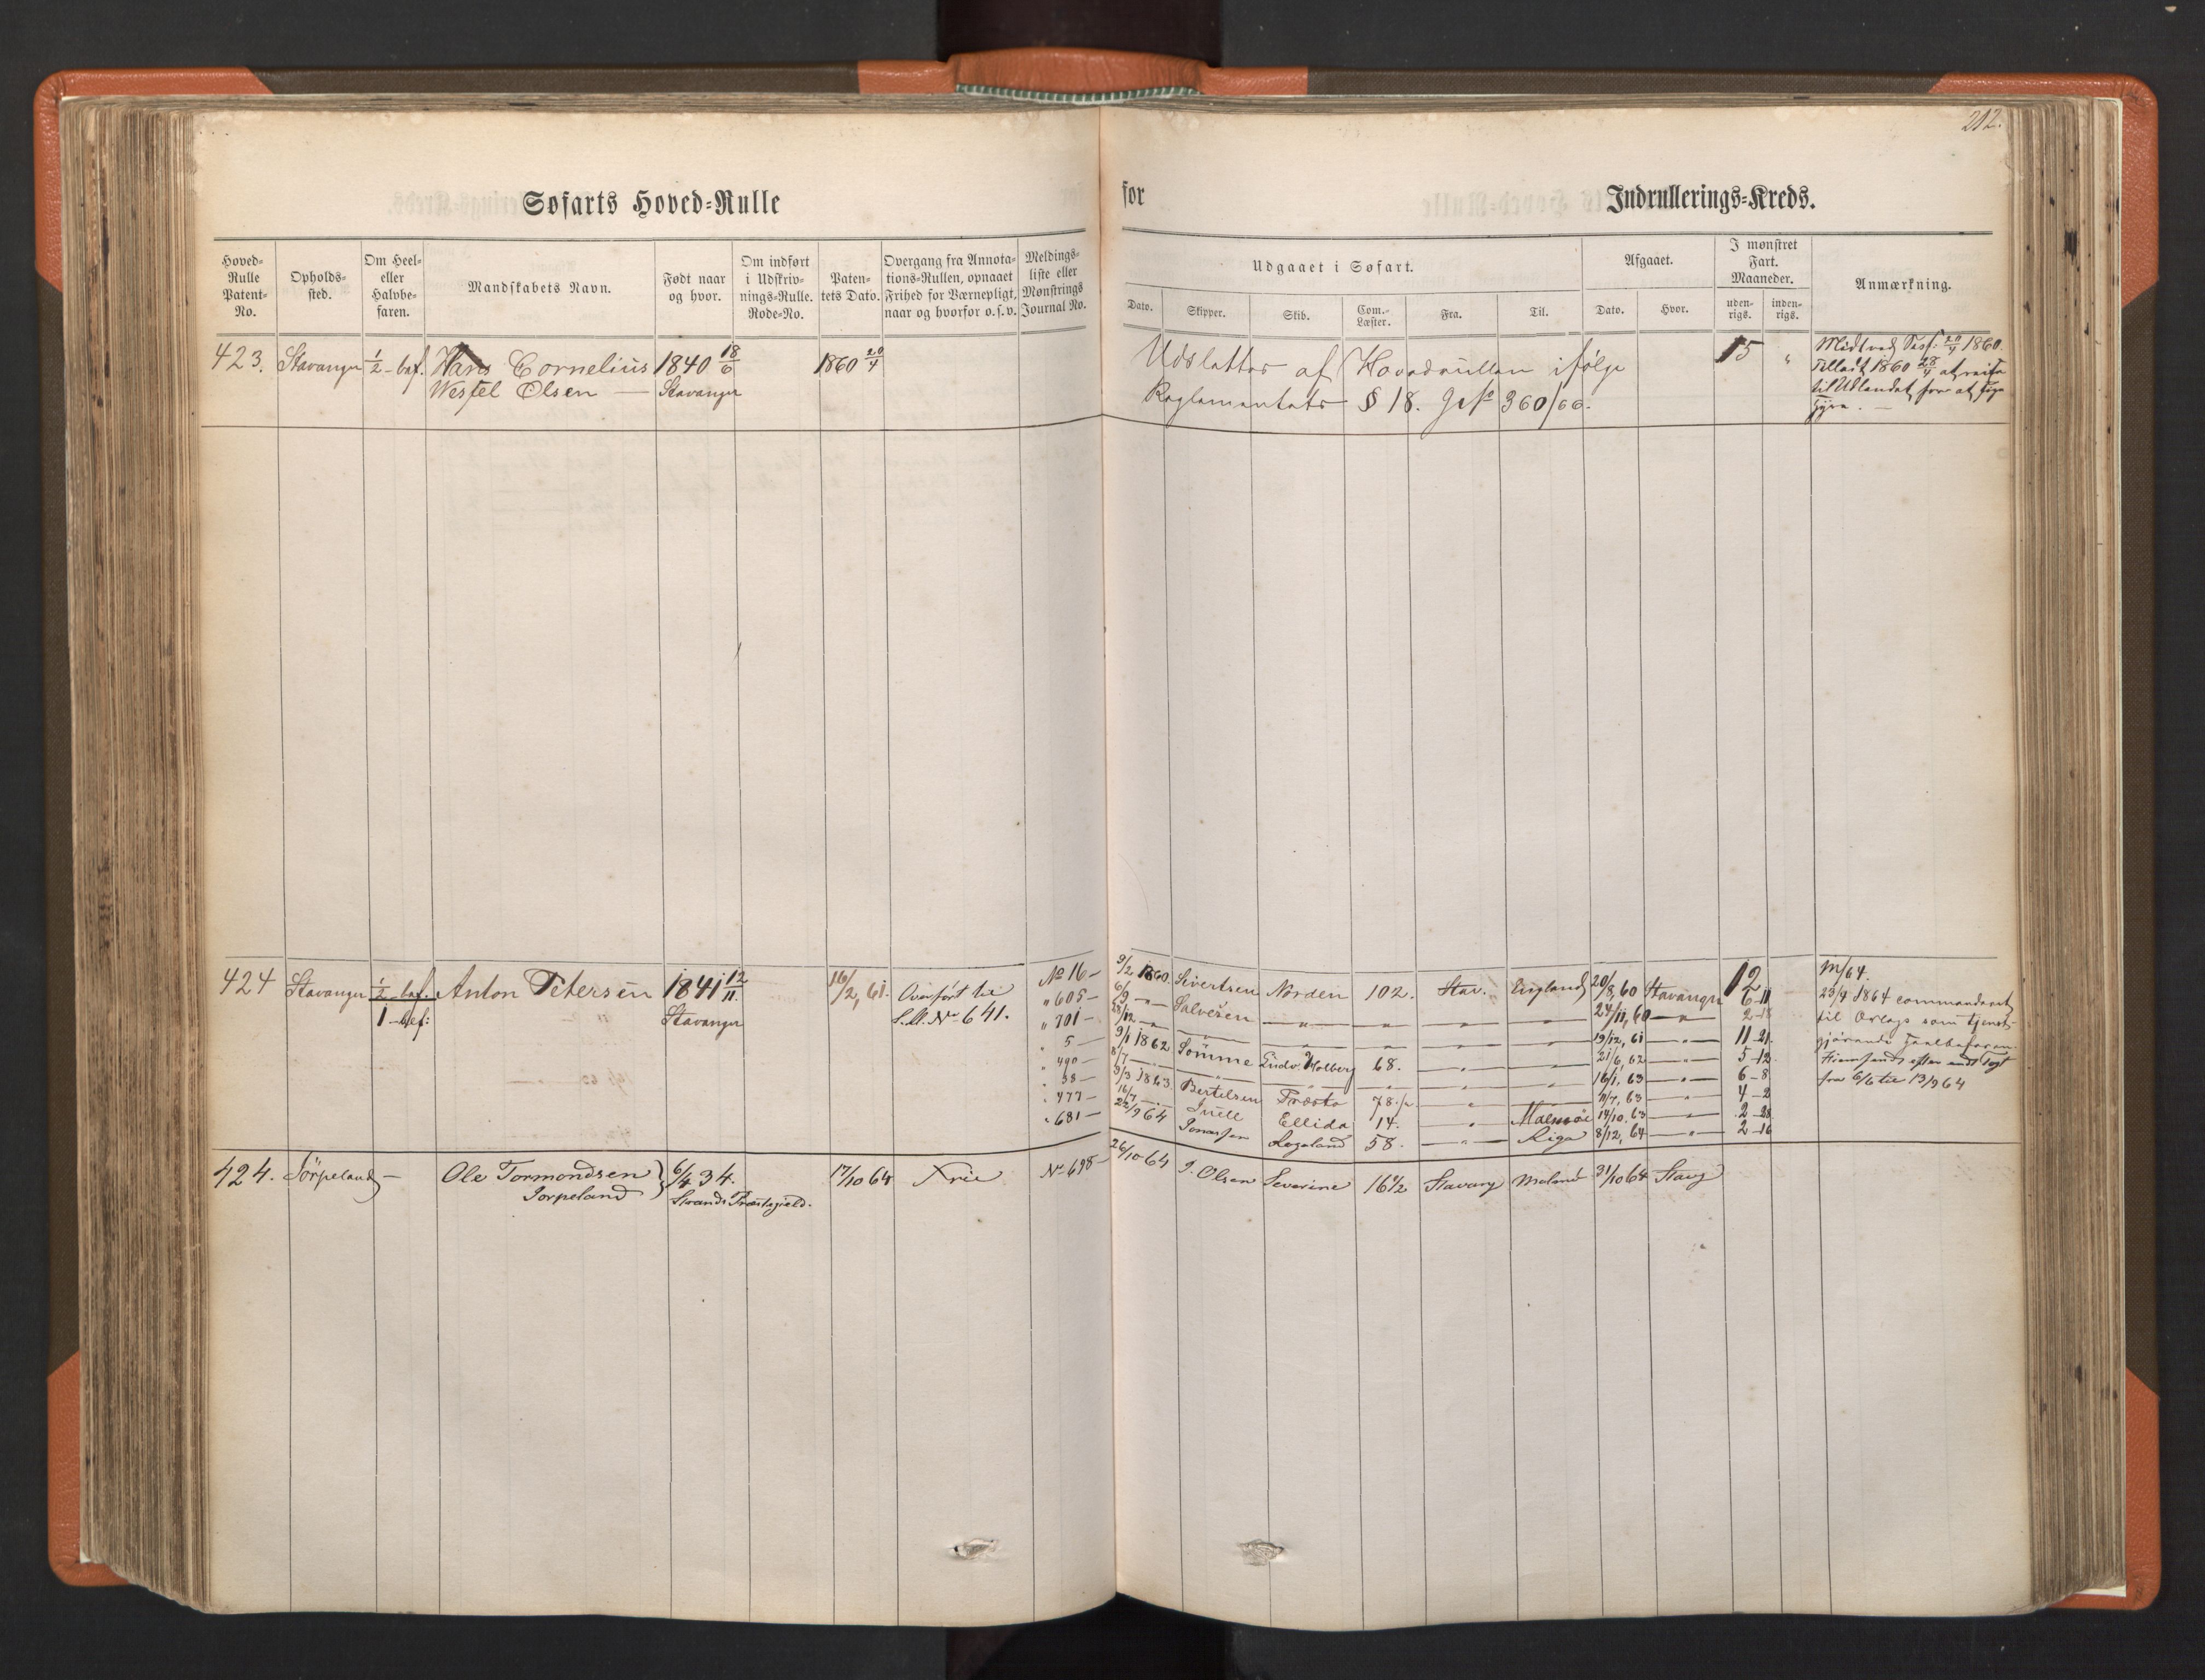 212.
Søfarts Hoved-Rulle
for Indrullerings-Kreds.
Hoved-Rulle Patent-No.
Opholds-sted.
Om Heel- eller Halvbe-faren.
Mandskabets Navn.
Født naar og hvor.
Om indført i Udskriv-nings-Rulle. Rode-No.
Paten-tets Dato.
Overgang fra Annota-tions-Rullen, opnaaet Frihed for Værnepligt, naar og hvorfor o.s.v.
Meldings-liste eller Mønstrings Journal No.
Udgaaet i Søfart.
Dato. Skipper. Skib. Com.-Læster. Fra. Til.
Afgaaet.
Dato. Hvor.
I mønstret Fart. Maaneder.
uden-rigs. inden-rigs.
Anmærkning.
423. Stavanger 1/2-bef. Hans Cornelius 1840 18/6 1860 20/4
Westel Olsen — Stavanger
Udslettes af Hovedrullen ifølge
Reglementets § 18. 360/66.
15 "
20/4 1860.
Tilladt 1860 28/4 at reise
til Udlandet for at
424 Stavanger 1/2-bef. Anton Petersen 1841 12/11. 16/2, 61. Overført til No 16 — 9/2 1860. Sivertsen Norden 102. Stav. England 20/8, 60 Stavanger 12
1-bef: Stavanger No 641. " 605 — 6/9 — " — Salvesen — " — " — " — — 24/11, 60 — " — 6-11
" 701 — 28/12 — " — " — " — " — " — 19/12, 61 — " — 11-21.
" 5 — 9/1 1862 Sömme Ludv. Holberg 68. — " — 21/6, 62 — " — 5-12.
" 490 — 8/7 — " — " — " — " — 16/1, 63 — " — 6-8
" 38 — 3/3 1863. Bertelsen Præsto 78. — " — 11/7, 63 — " — 4-2
" 477 — 16/7 — Juell Ellida 14. — " — Malmöe 14/10, 63 — " — 2-28
" 681 — 22/9 64 Jonassen Rogaland 58. — " — Riga 8/12, 64 — " — 2-16
m/64.
23/4 1864 commanderet
til Orlogs som tjenst-
gjørende
fra 6/6 til 13/9 64
424. Jörpeland — Ole Tormondsen } 6/4 34. 17/10 64 Frie No 698 — 26/10 64 J. Olsen Severine 16 1/2 Stavang 31/10 64 Stavg
Jorpeland Strands Præstegield.